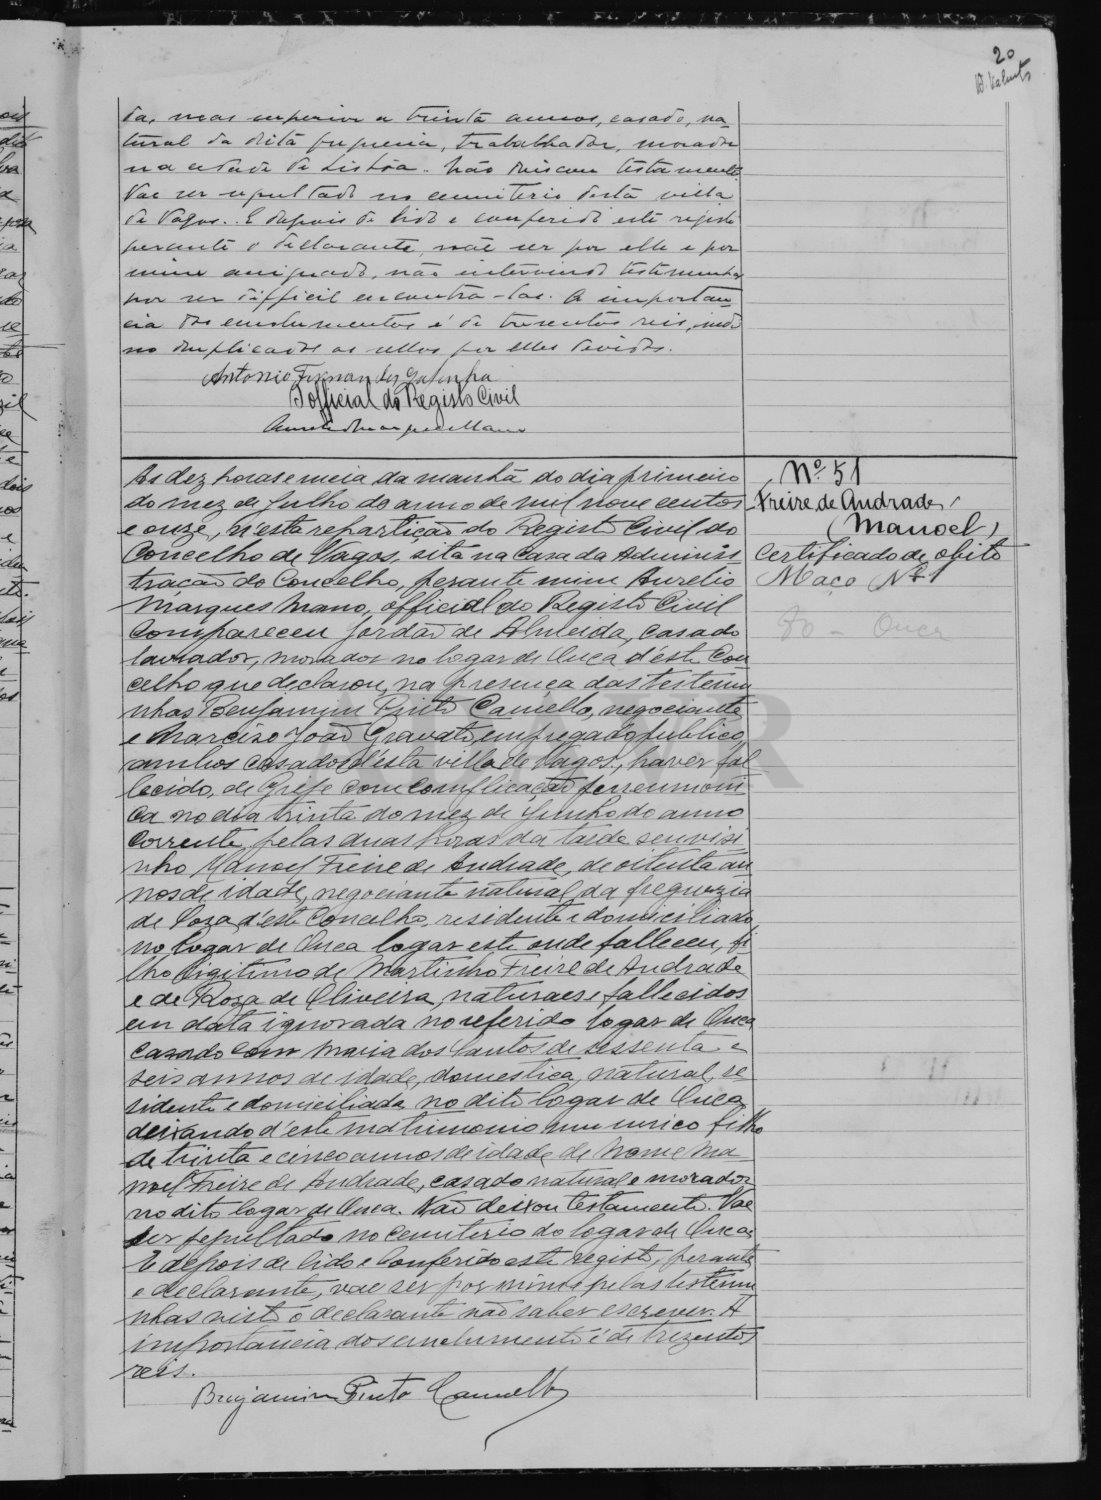 20
da, mas superior a trinta annos, casado, na
tural da dita freguezia, trabalhador, morador
na cidade de Lisbôa. Não deixou testamento.
Vae ser sepultado no cemiterio desta villa
de Vagos. E depois de lido e conferido este registo
perante o declarante, vae ser por elle e por
mim assignado, não intervindo testemunhas
por ser difficil encontra-las. A importan
cia dos emolumentos é de trezentos reis, indo
no duplicado os sellos por elles devidos.
Antonio Fernandes
O official do Registo Civil
Aurelio Marques Mano
As dez horas e meia da manhã do dia primeiro
do mez de Julho do anno de mil nove centos
e onze, n'esta repartição do Registo Civil do
Concelho de Vagos, sita na Casa da Adminis
tração do Concelho, perante mim Aurelio
Marques Mano, official do Registo Civil
compareceu Jordão de Almeida, casado
lavrador, morador no logar de Ouca d'este Con
celho que declarou, na presença das testemu
nhas Benjamim Pinto Camello, negociante
e Marcizo João Gravato empregado publico,
ambos casados d'esta villa de Vagos, haver fal
lecido, de Gripe com complicação pneumoni
ca no dia trinta do mez de Junho do anno
corrente, pelas duas horas da tarde seu visi
nho Manoel Freire de Andrade, de oitenta an
nos de idade, negociante natural da freguezia
de Soza d'este Concelho, residente e domiciliado
no logar de Ouca logar este onde falleceu, fi
lho legitimo de Martinho Freire de Andrade
e de Roza de Oliveira, naturaes e fallecidos
em data ignorada no referido logar de Ouca
casado com Maria dos Santos de sessenta e
seis annos de idade, domestica, natural, re
sidente e domiciliada no dito logar de Ouca,
deixando d'este matrimonio um unico filho
de trinta e cinco annos de idade de nome Ma
noel Freire de Andrade, casado natural e morador
no dito logar de Ouca. Não deixou testamento. Vae
ser sepultado no cemiterio do logar de Ouca.
E depois de lido e conferido este registo, perante
o declarante, vae ser por mim e pelas testemu
nhas visto o declarante não saber escrever. A
importancia dos emolumentos é de trezentos
reis.
Benjamim Pinto Camello
Nº 51
Freire de Andrade,
(Manoel)
Certificado de obito
Maço Nº 1